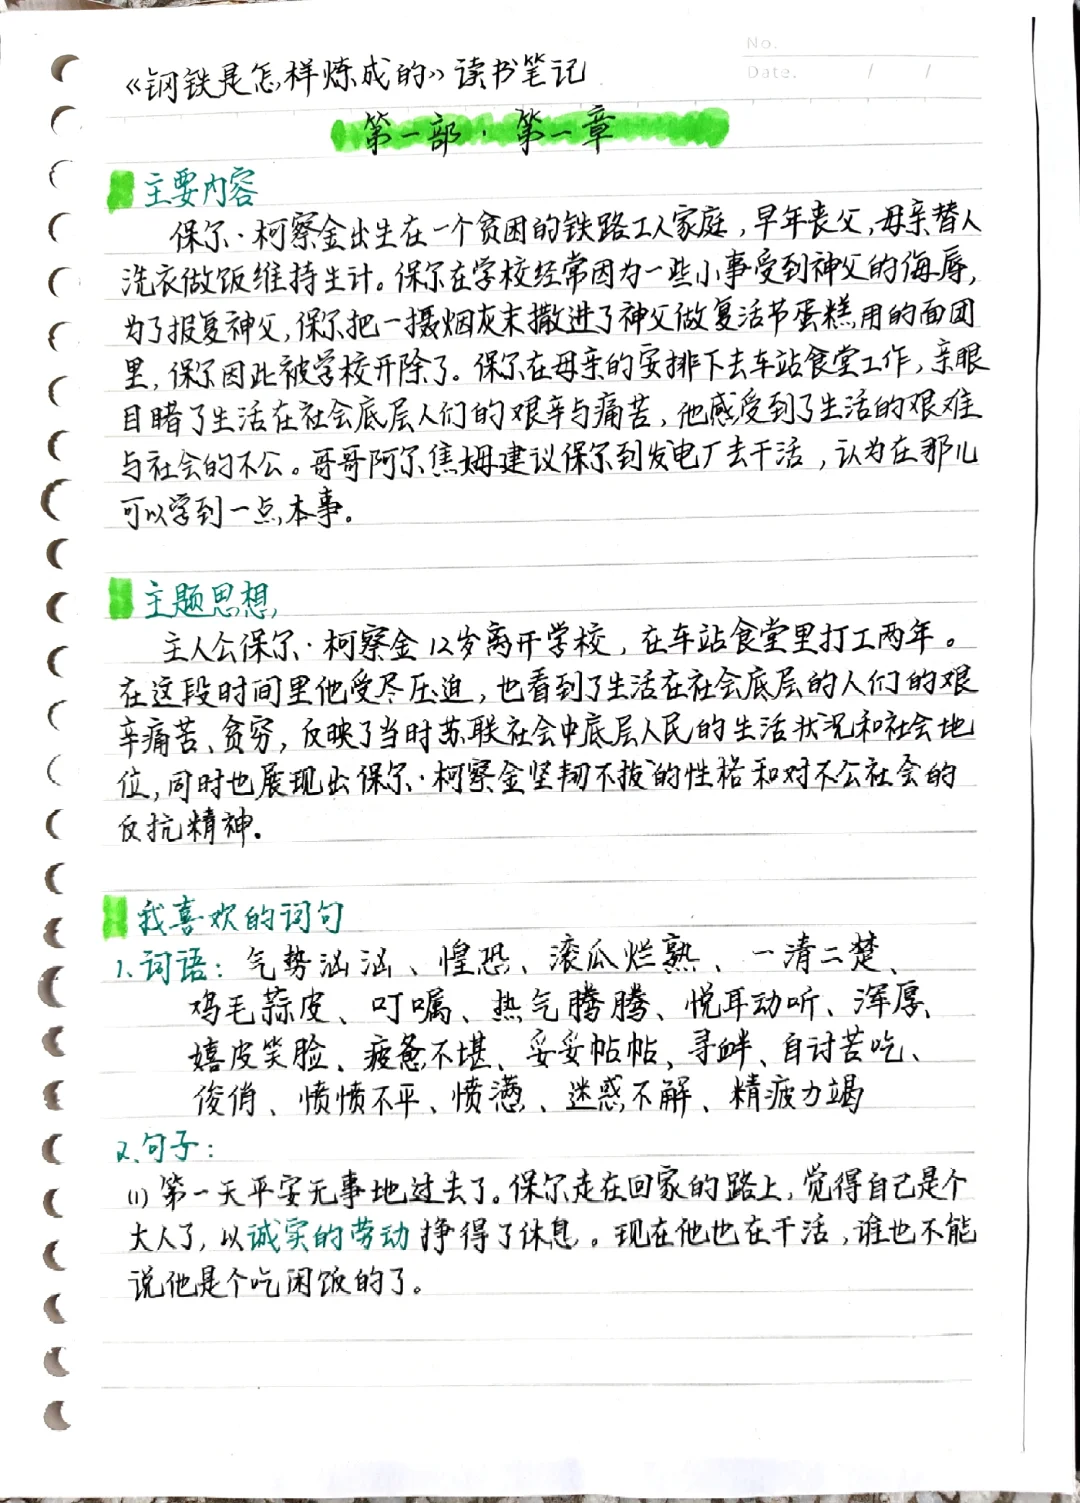 No.
Date. / /
《钢铁是怎样炼成的》读书笔记
第一部·第一章
主要内容
保尔·柯察金出生在一个贫困的铁路工人家庭,早年丧父,母亲替人
洗衣做饭维持生计。保尔在学校经常因为一些小事受到神父的侮辱,
为了报复神父,保尔把一撮烟灰末撒进了神父做复活节蛋糕用的面团
里,保尔因此被学校开除了。保尔在母亲的安排下去车站食堂工作,亲眼
目睹了生活在社会底层人们的艰辛与痛苦,他感受到了生活的艰难
与社会的不公。哥哥阿尔焦姆建议保尔到发电厂去干活,认为在那儿
可以学到一点本事。
主题思想
主人公保尔·柯察金12岁离开学校,在车站食堂里打工两年。
在这段时间里他受尽压迫,也看到了生活在社会底层的人们的艰
辛痛苦、贫穷,反映了当时苏联社会中底层人民的生活状况和社会地
位,同时也展现出保尔·柯察金坚韧不拔的性格和对不公社会的
反抗精神。
我喜欢的词句
1.词语:气势汹汹、惶恐、滚瓜烂熟、一清二楚、
鸡毛蒜皮、叮嘱、热气腾腾、悦耳动听、浑厚、
嬉皮笑脸、疲惫不堪、妥妥帖帖、寻衅、自讨苦吃、
俊俏、愤愤不平、愤懑、迷惑不解、精疲力竭
2.句子:
(1)第一天平安无事地过去了。保尔走在回家的路上,觉得自己是个
大人了,以诚实的劳动挣得了休息。现在他也在干活,谁也不能
说他是个吃闲饭的了。